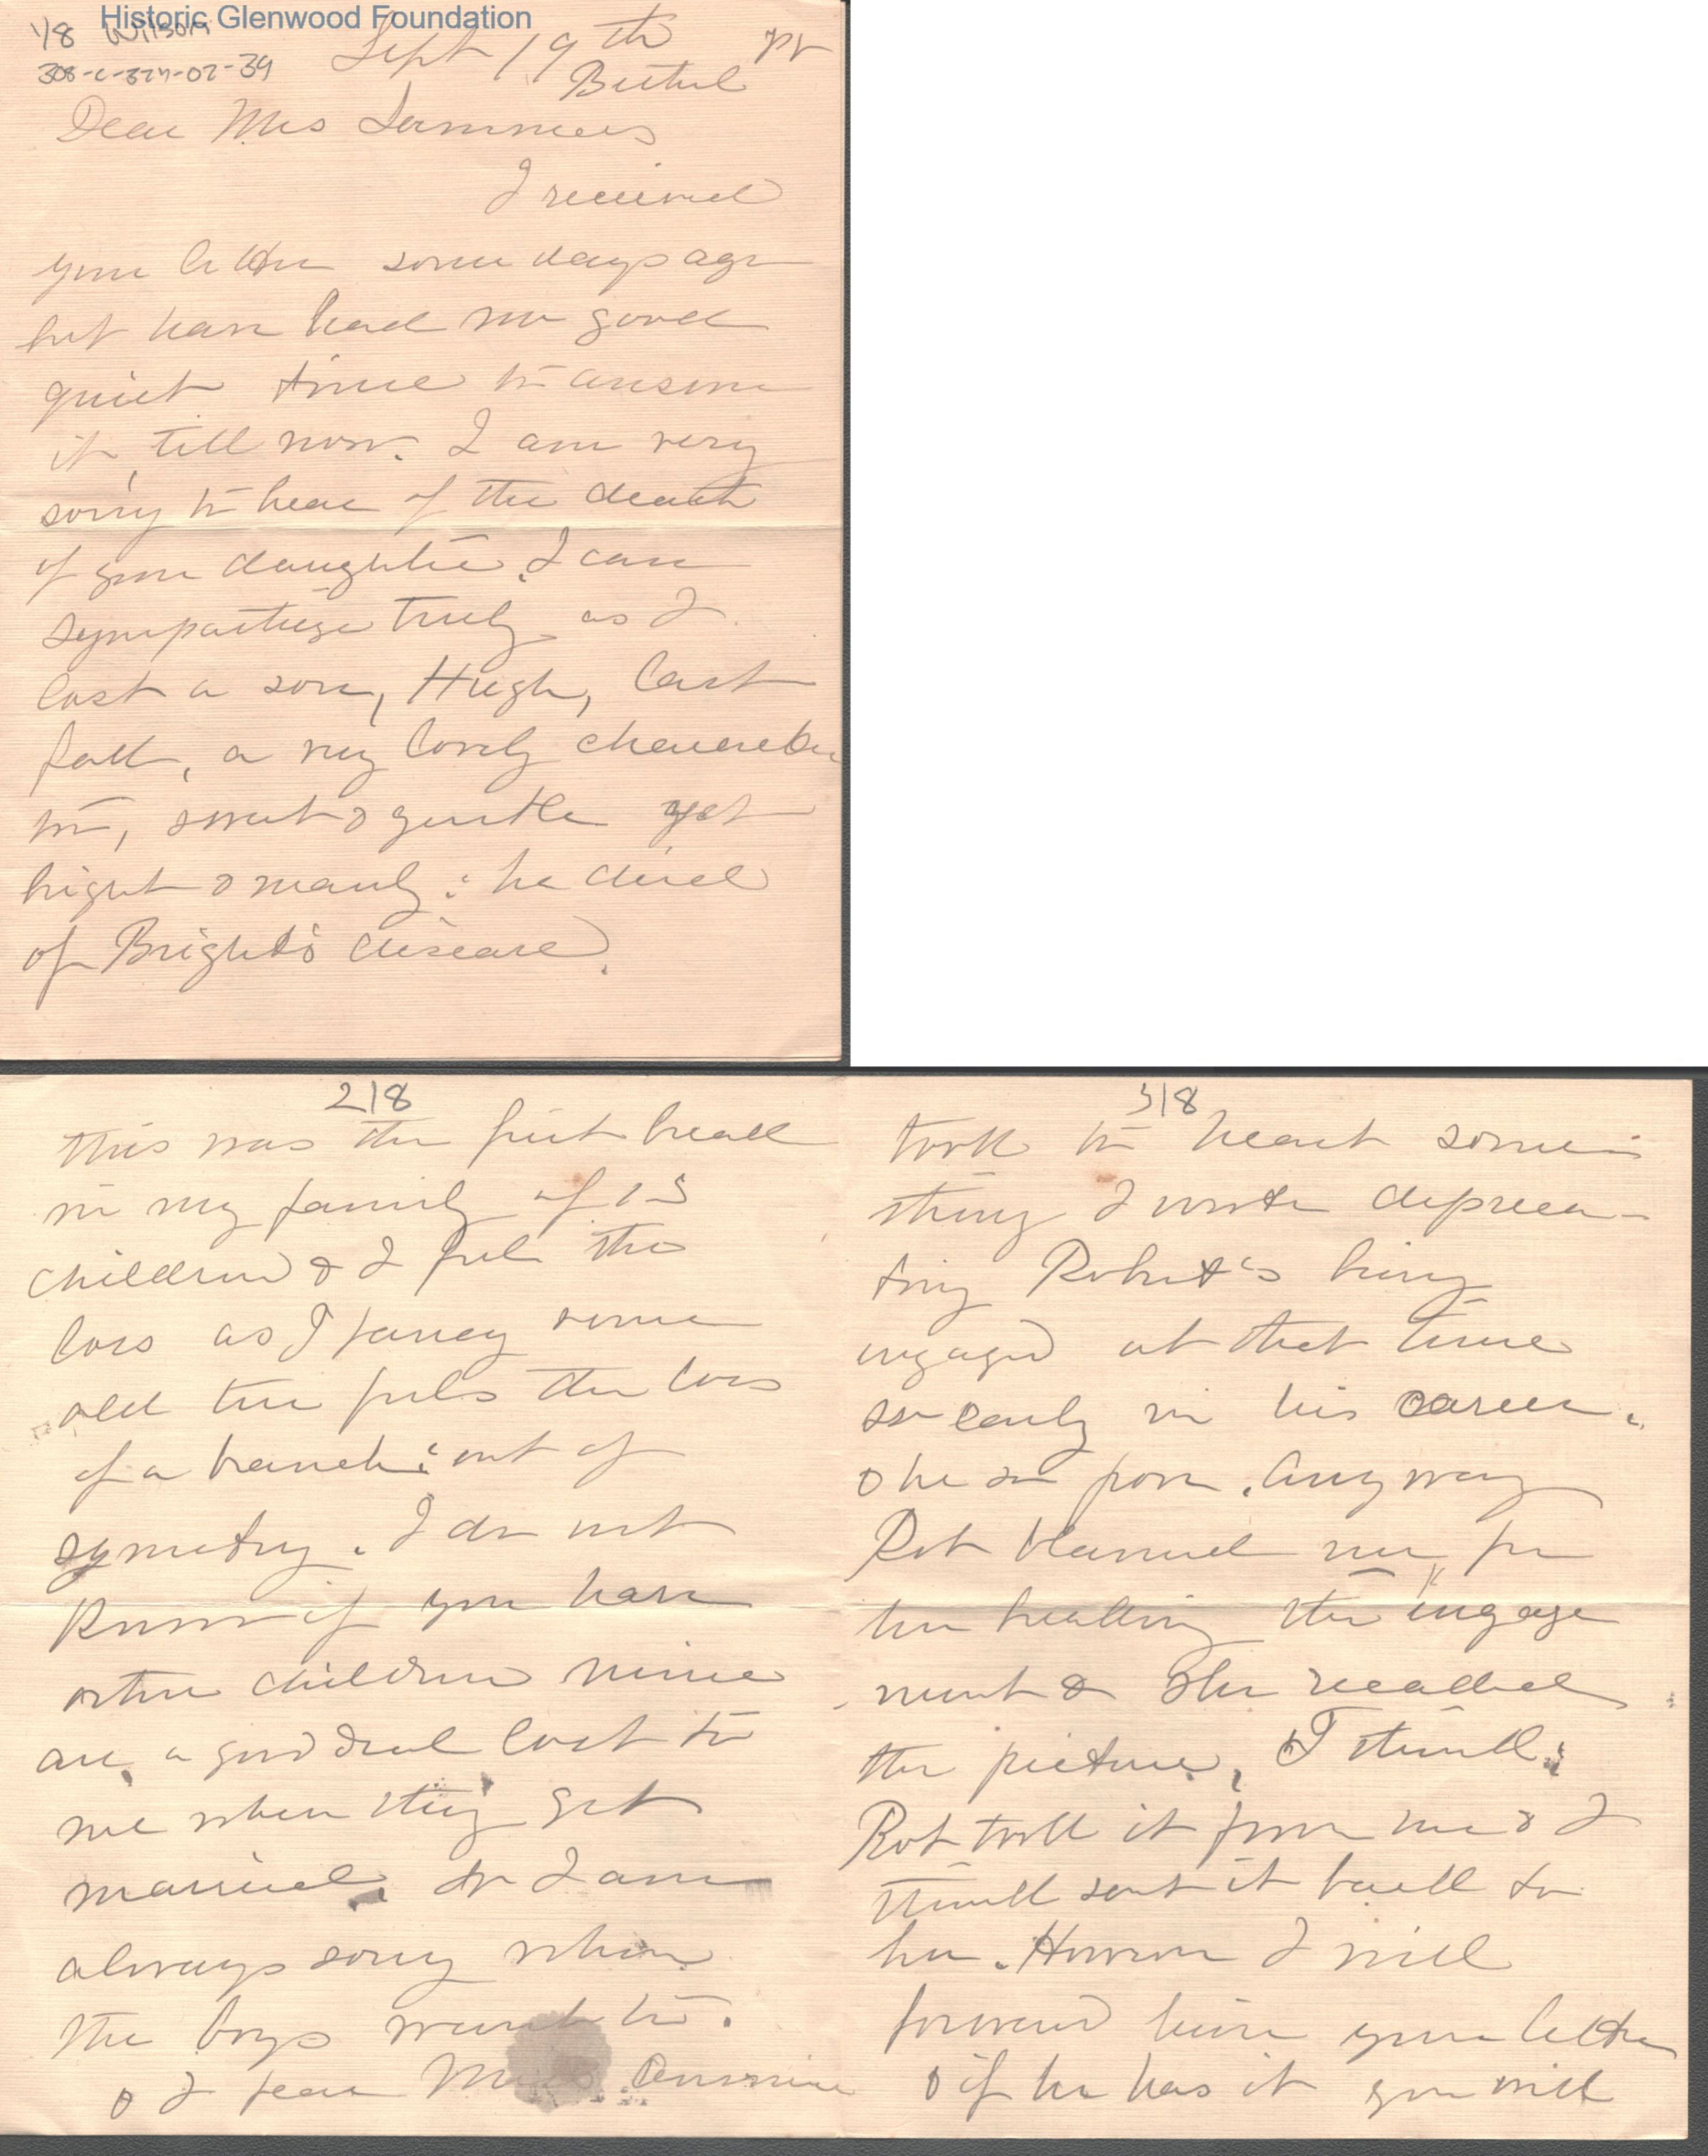 Historic Glenwood Foundation
1/8 Wilson
308-c-324-02-39
Sept 19th
Bethel
Dear Mrs Summers
I received
your letter some days ago
but have had no good
quiet time to answer
it, till now. I am very
sorry to hear of the death
of your daughter. I can
sympathize truly as I
lost a son, Hugh, last
fall, a very lovely character
too, sweet & gentle yet
bright & manly: he died
of Bright's disease.
2/8
this was the first break
in my family of 13
children & I feel the
loss as I fancy some
old tree feels the loss
of a branch: out of
symetry. I do not
know if you have
other children mine
are a good deal lost to
me when they get
married, & I am
always sorry when
the boys want to.
& I fear Miss
3/8
took to heart some-
thing I wrote depreca-
ting Robert's being
engaged at that time
so early in his career.
& he so poor. Anyway
Rob blamed me, for
her breaking the engage
ment & she recalled
the picture, I think:
Rob took it from me & I
think sent it back to
her. However I will
forward him your letter
& if he has it you will